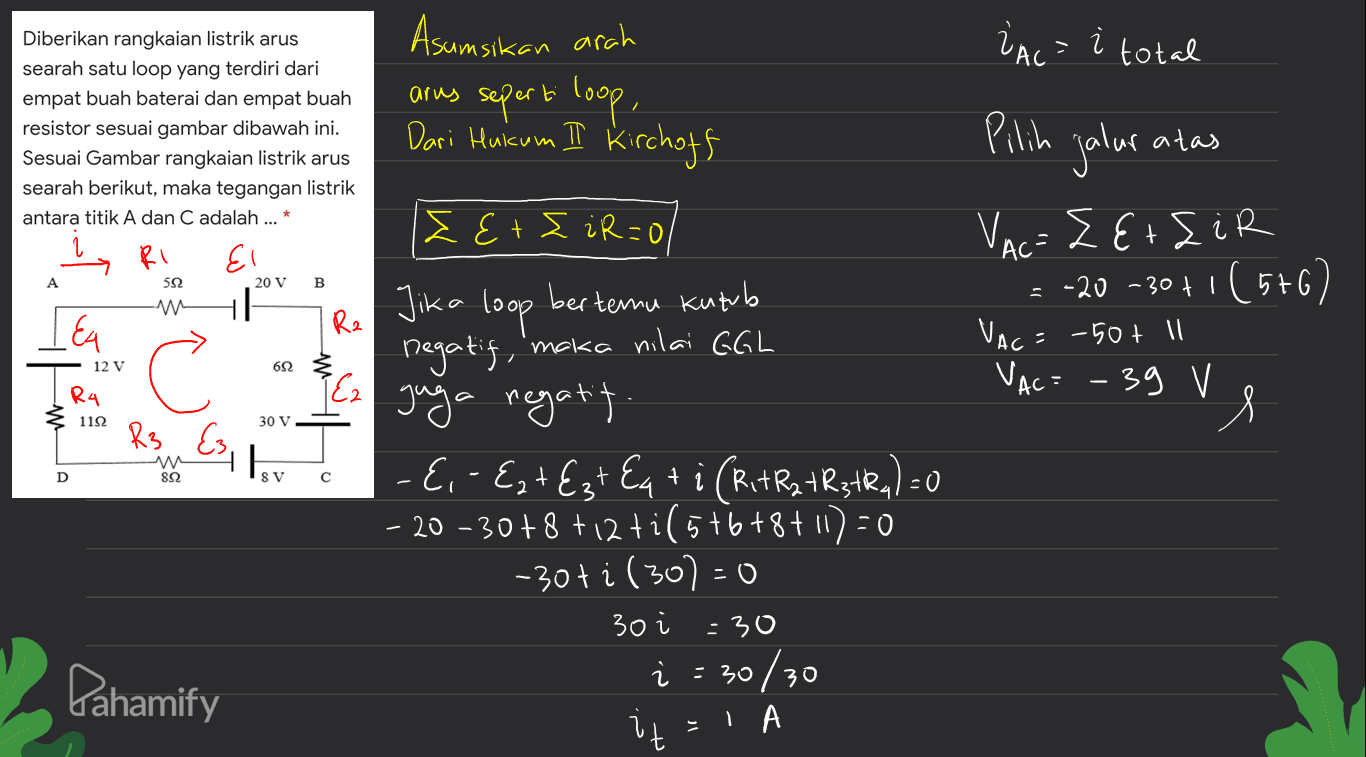 Diberikan rangkaian listrik arus
searah satu loop yang terdiri dari
empat buah baterai dan empat buah
resistor sesuai gambar dibawah ini.
Sesuai Gambar rangkaian listrik arus
searah berikut, maka tegangan listrik
antara titik A dan C adalah ... *
i R1 ε1
A 5Ω 20 V B
ε4 R2
12 V 6Ω
R4 ε2
11Ω 30 V
R3 ε3
D 8Ω 8 V C
Asumsikan arah
arus seperti loop,
Dari Hukum II Kirchoff
Σ ε + Σ iR = 0
Jika loop bertemu kutub
negatif, maka nilai GGL
juga negatif.
- ε1 - ε2 + ε3 + ε4 + i (R1+R2+R3+R4) = 0
- 20 - 30 + 8 + 12 + i (5+6+8+11) = 0
-30 + i (30) = 0
30 i = 30
i = 30/30
it = 1 A
iAC = i total
Pilih jalur atas
VAC = Σ ε + Σ iR
= -20 -30 + 1 (5+6)
VAC = -50 + 11
VAC = - 39 V
Pahamify